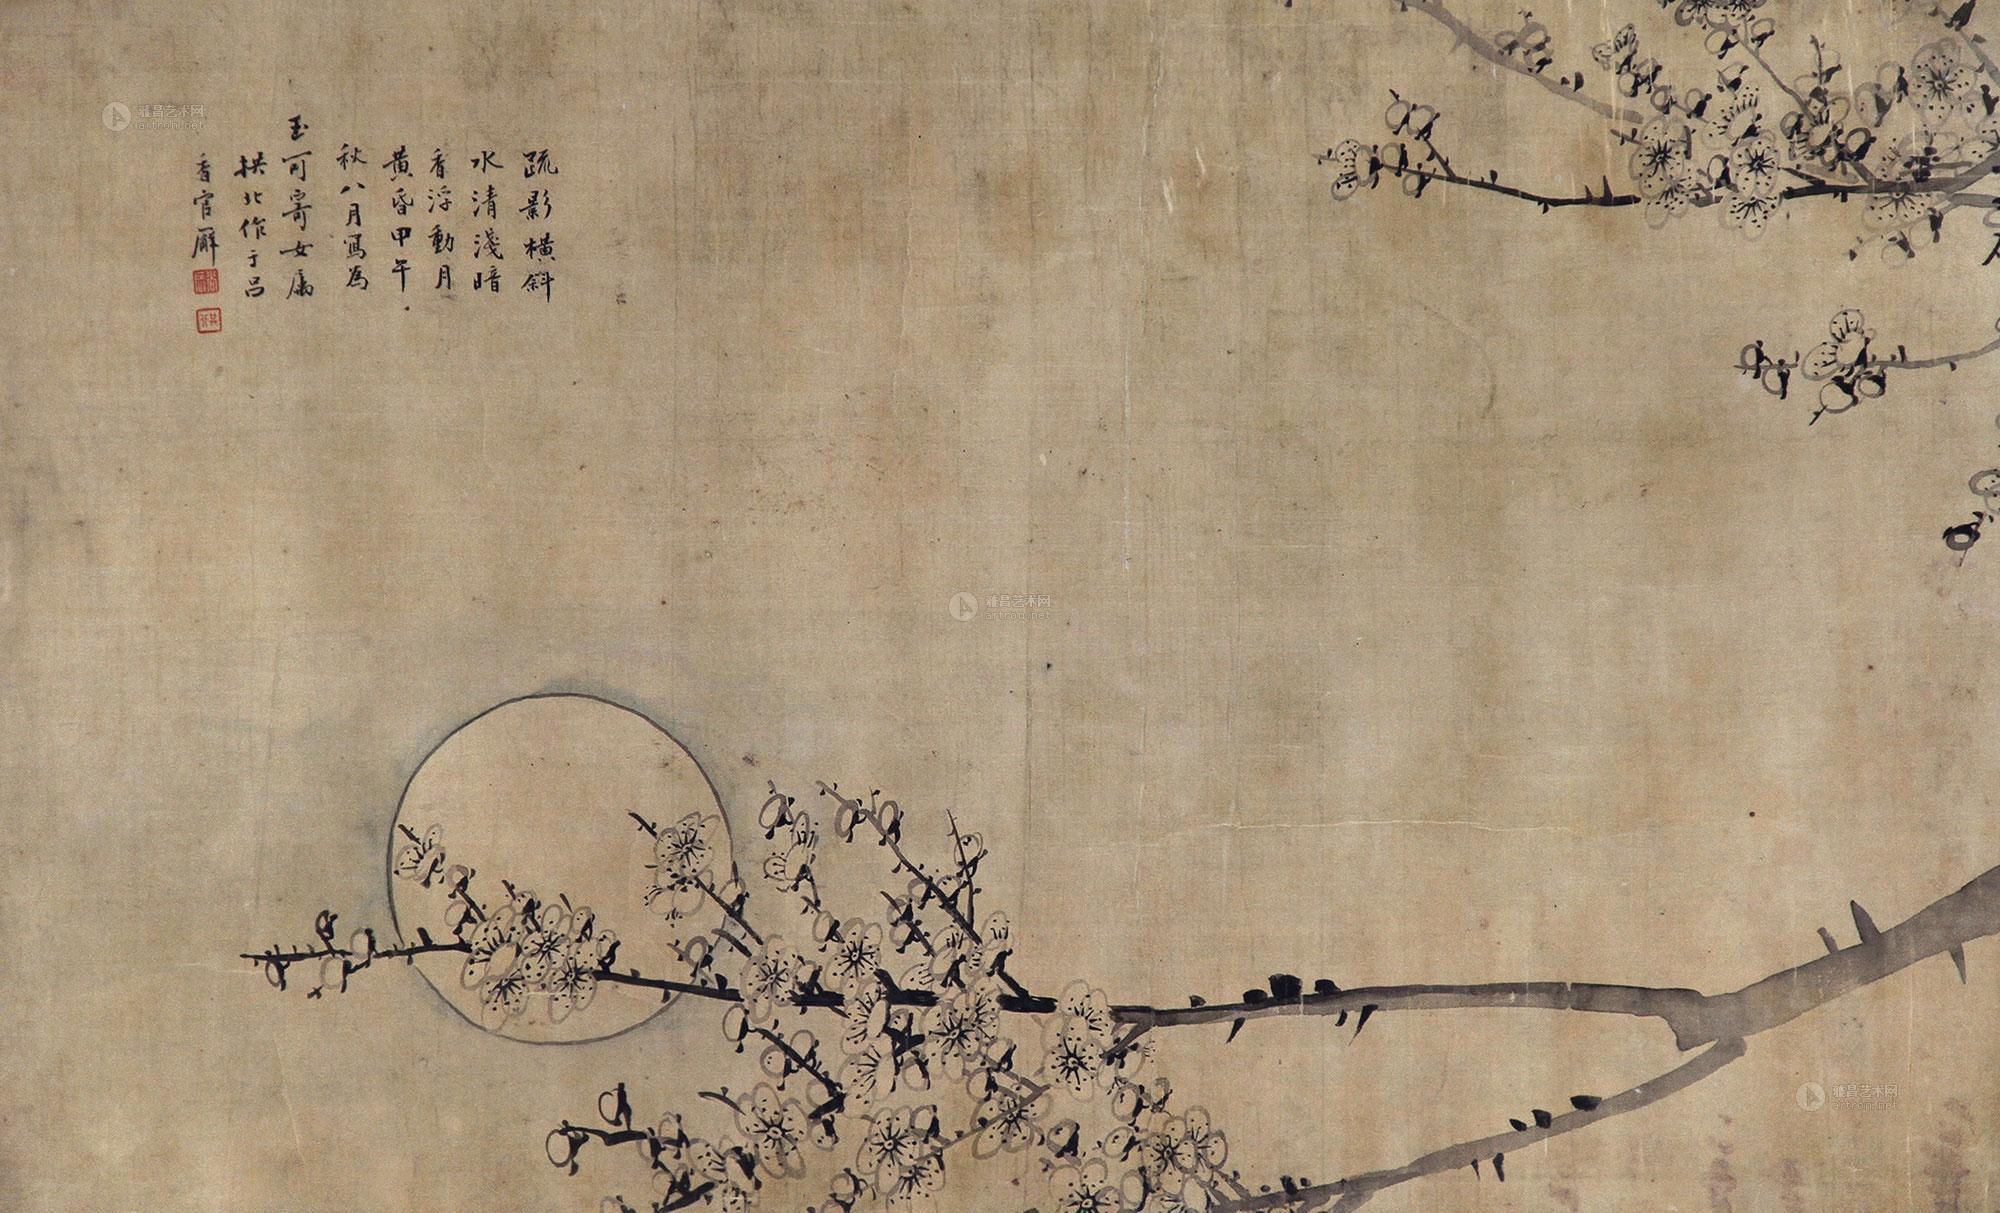 疏影橫斜
水清淺暗
香浮動月
黃昏甲午
秋八月寫為
玉可寄女属
拱北作于呂
香官廨
雅昌艺术网
artron.net
雅昌艺术网
artron.net
雅昌艺术网
artron.net